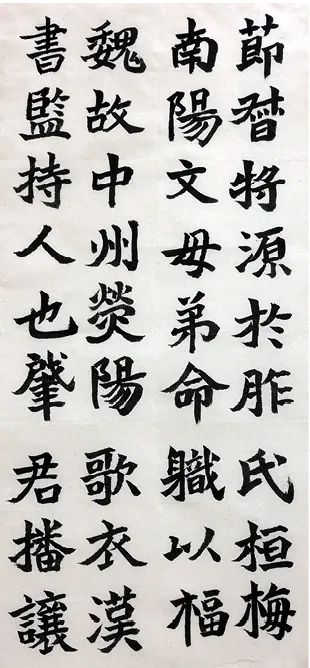 莭將源於胙氏桓梅
南陽文母弟命軄以楅
魏故中州熒陽歌衣漢
書監持人也肇君播讓